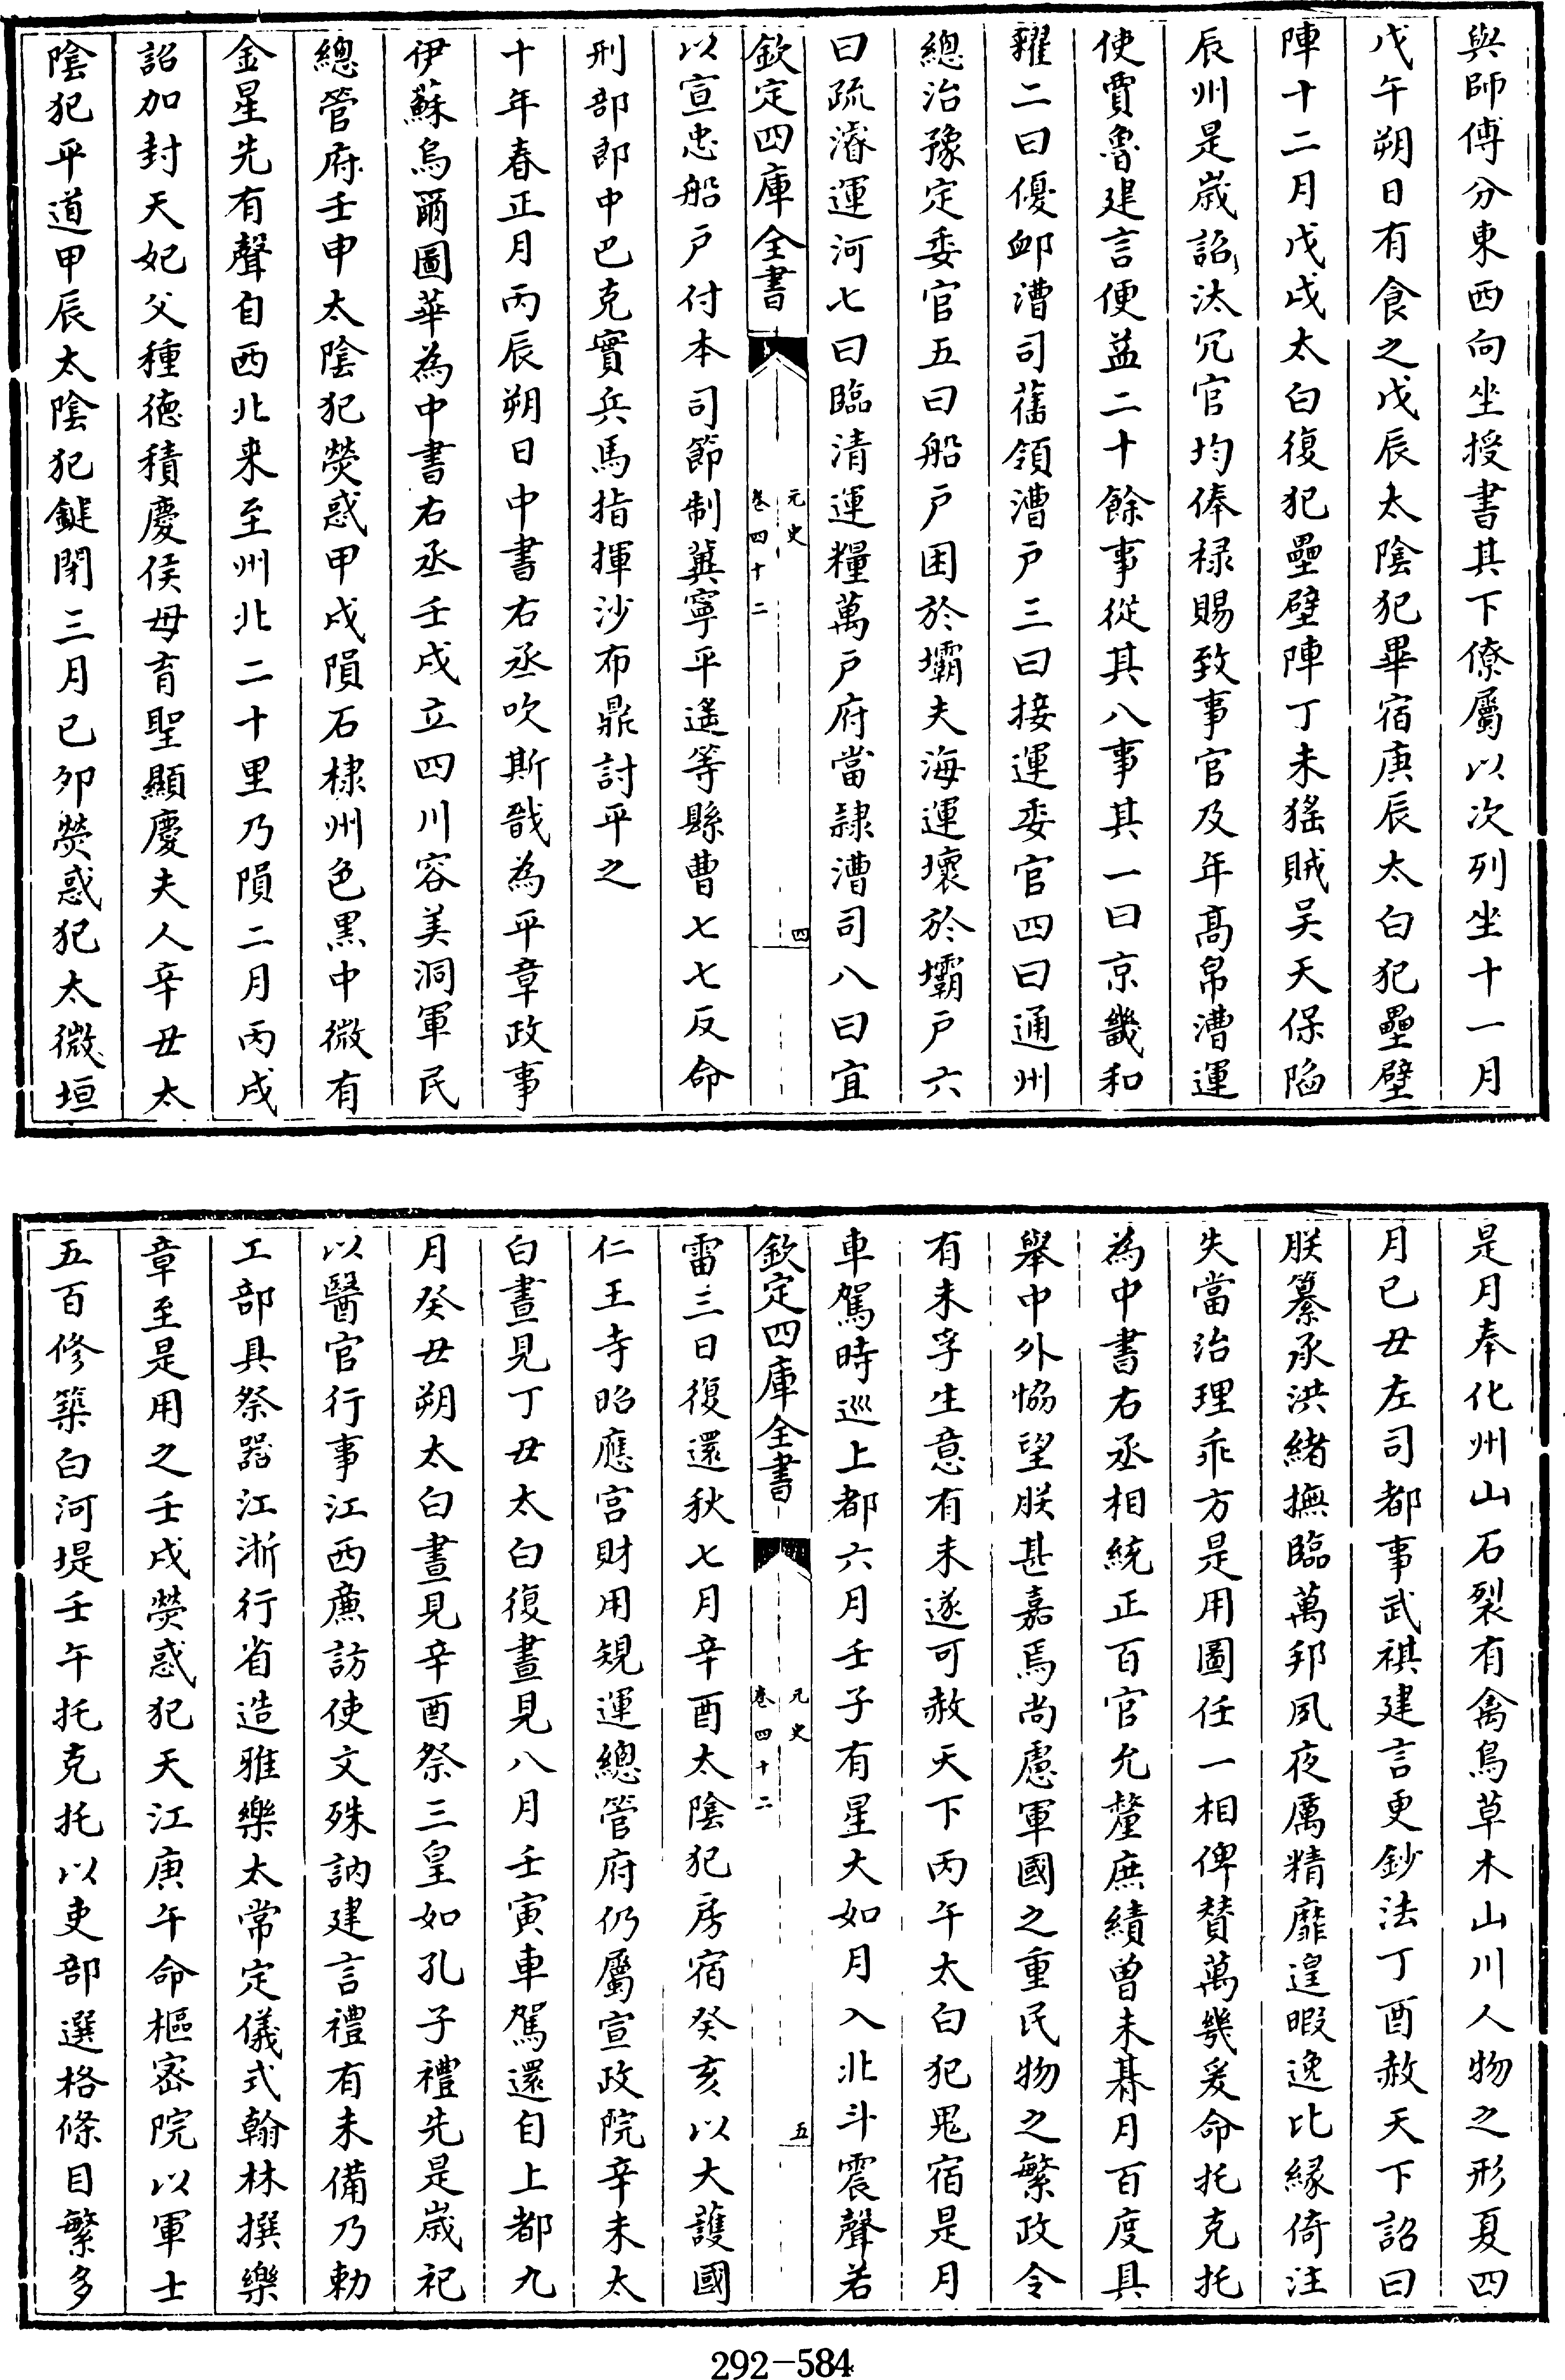 與師傅分東西向坐授書其下僚屬以次列坐十一月
戊午朔日有食之戊辰太陰犯畢宿庚辰太白犯壘壁
陣十二月戊戌太白復犯壘壁陣丁未猺賊吳天保陷
辰州是歳詔汰冗官均俸祿賜致事官及年髙帛漕運
使賈魯建言便益二十餘事從其八事其一曰京畿和
糴二曰優䘏漕司舊領漕户三曰接運委官四曰通州
總治豫定委官五曰船户困於壩夫海運壞於壩户六
曰疏濬運河七曰臨清運糧萬户府當隸漕司八曰宜
欽定四庫全書
元史
卷四十二
四
以宣忠船户付本司節制冀寧平遙等縣曹七七反命
刑部郎中巴克實兵馬指揮沙布鼎討平之
十年春正月丙辰朔日中書右丞吹斯戬為平章政事
伊蘇烏爾圖華為中書右丞壬戌立四川容美洞軍民
總管府壬申太陰犯熒惑甲戌隕石棣州色黒中微有
金星先有聲自西北来至州北二十里乃隕二月丙戌
詔加封天妃父種徳積慶侯母育聖顯慶夫人辛丑太
陰犯平道甲辰太陰犯鍵閉三月己夘熒惑犯太微垣
是月奉化州山石裂有禽鳥草木山川人物之形夏四
月己丑左司都事武祺建言更鈔法丁酉赦天下詔曰
朕纂承洪緒撫臨萬邦夙夜厲精靡遑暇逸比緣倚注
失當治理乖方是用圖任一相俾賛萬幾爰命托克托
為中書右丞相統正百官允釐庶績曾未朞月百度具
舉中外恊望朕甚嘉焉尚慮軍國之重民物之繁政令
有未孚生意有未遂可赦天下丙午太白犯鬼宿是月
車駕時巡上都六月壬子有星大如月入北斗震聲若
欽定四庫全書
元史
卷四十二
五
雷三日復還秋七月辛酉太陰犯房宿癸亥以大護國
仁王寺昭應宫財用規運總管府仍屬宣政院辛未太
白晝見丁丑太白復晝見八月壬寅車駕還自上都九
月癸丑朔太白晝見辛酉祭三皇如孔子禮先是歳祀
以醫官行事江西亷訪使文殊訥建言禮有未備乃勅
工部具祭器江淛行省造雅樂太常定儀式翰林撰樂
章至是用之壬戌熒惑犯天江庚午命樞宻院以軍士
五百修築白河堤壬午托克托以吏部選格條目繁多
292-584